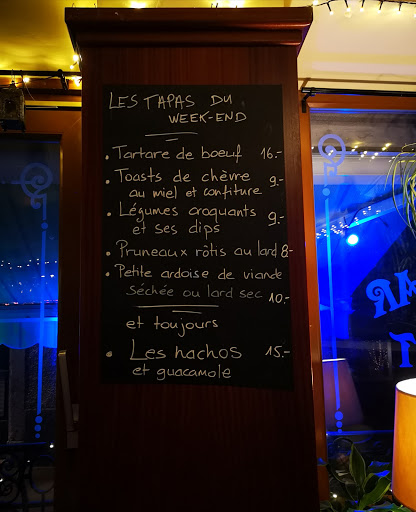 LES TAPAS DU
WEEK-END
• Tartare de boeuf 16.-
• Toasts de chèvre 9.-
au miel et confiture
• Légumes croquants 9.-
et ses dips
• Pruneaux rôtis au lard 8-
• Petite ardoise de viande
Séchée ou lard sec 10.-
et toujours
• Les nachos 15.-
et guacamole